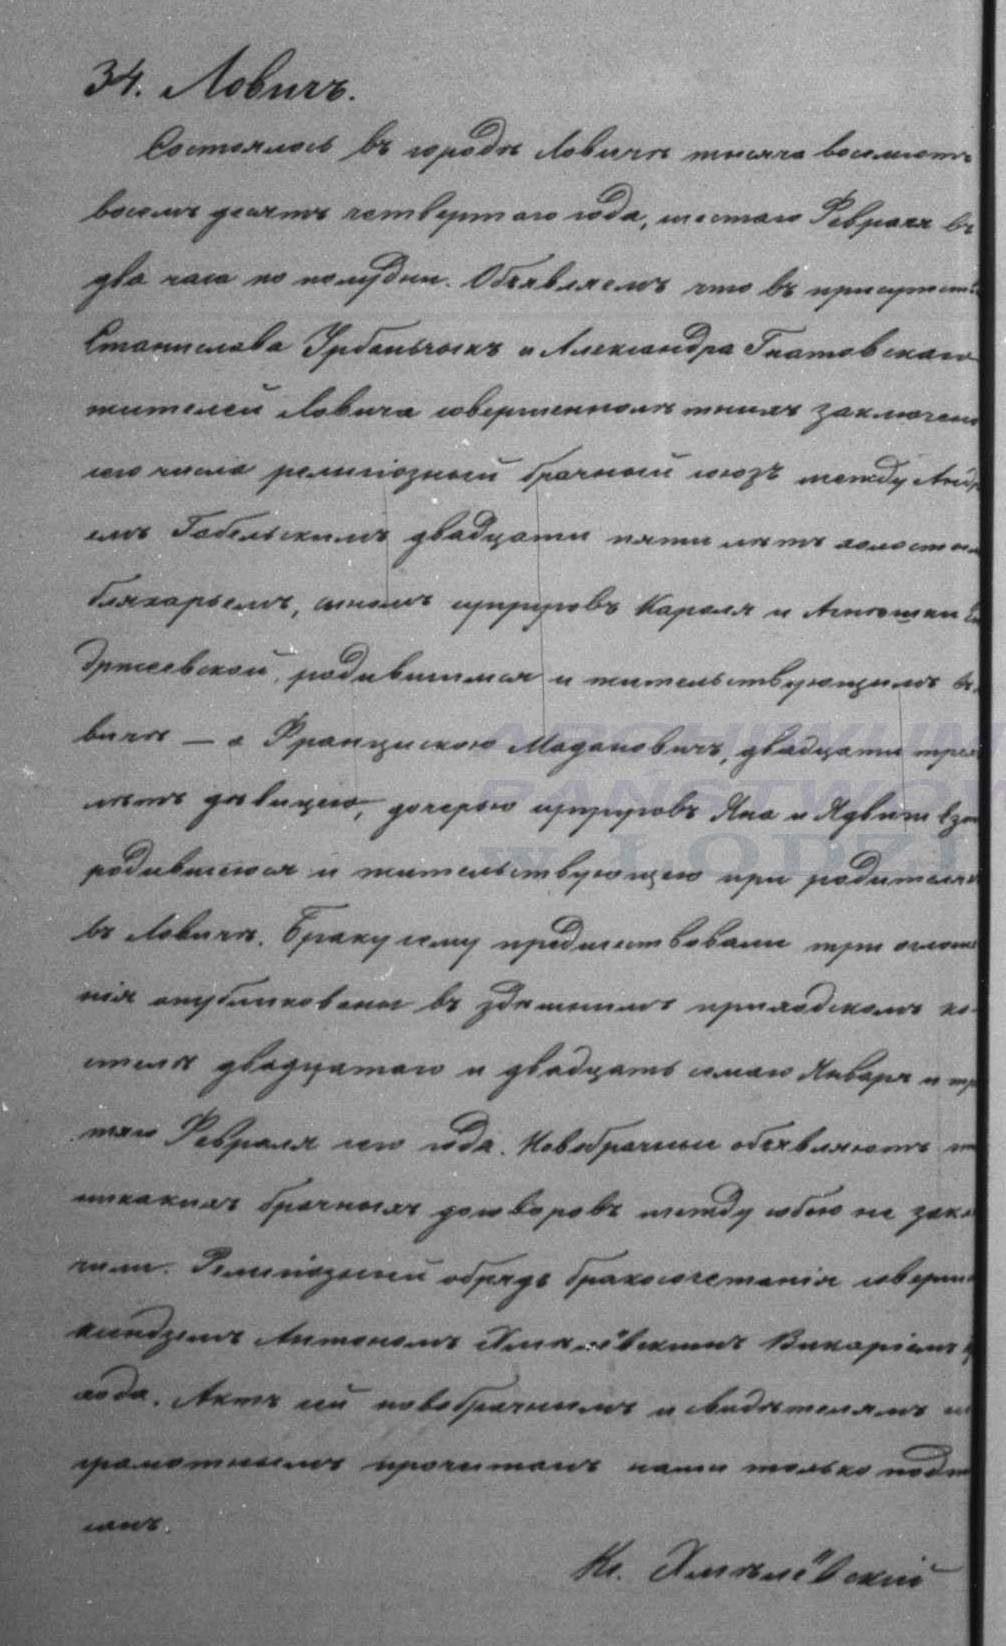 34. Ловичъ.
Состоялось въ городѣ Ловичѣ тысяча восемьсотъ
восемьдесятъ четвертаго года, шестаго Февраля въ
два часа по полудни. Объявляемъ что въ присутств
Станислава Урбаньчыкъ и Александра Гнатовскаго
жителей Ловича совершеннолѣтнихъ заключено
сего числа религіозный брачный союзъ между Андр
емъ Гобельскимъ двадцати пяти лѣтъ холостым
бляхарьемъ, сыномъ супруговъ Кароля и Агнѣшки
Эржеевской, родившимся и жительствующимъ въ
вичѣ — а Францискою Мадановичъ, двадцати трех
лѣтъ дѣвицею, дочерью супруговъ Яна и Ядвиги
родившеюся и жительствующею при родителях
въ Ловичѣ. Браку сему предшествовали три оглаше
нія опубликованы въ здѣшнимъ приходскомъ ко-
стелѣ двадцатаго и двадцать семаго Января и тре
тяго Февраля сего года. Новобрачные объявляютъ
никакихъ брачныхъ договоровъ между собою не заклю
чили. Религіозный обрядъ бракосочетанія соверше
ксендземъ Антономъ Хмелёвскимъ Викаріемъ
хода. Актъ сей новобрачнымъ и свидѣтелямъ не
грамотнымъ прочитанъ нами только подпи
санъ.
Кс. Хмѣлёвский
ARCHIWUM
PAŃSTWOW
w ŁODZI